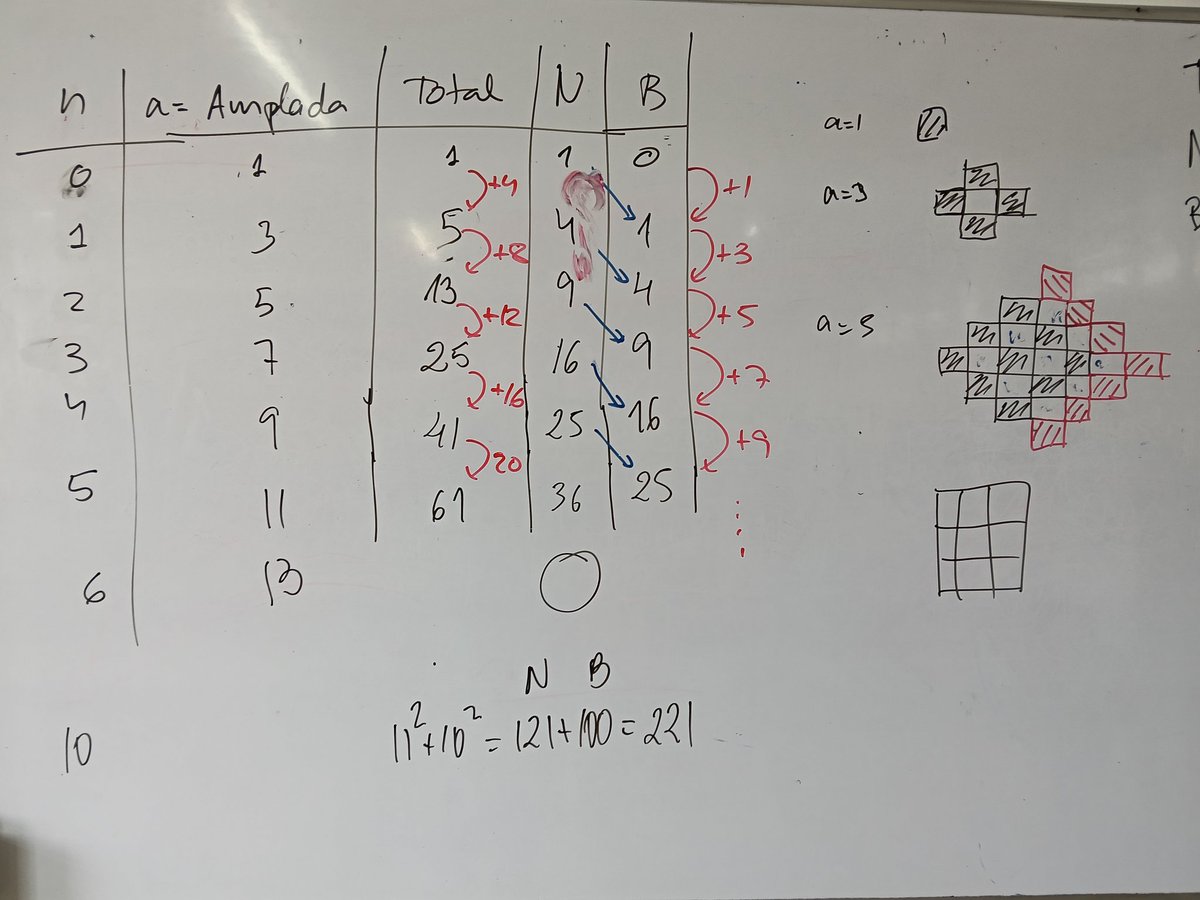 n a= Amplada Total N B
0 1 1 1 0
+4 +1
1 3 5 4 1
+8 +3
2 5 13 9 4
+12 +5
3 7 25 16 9
+16 +7
4 9 41 25 16
20 +9
5 11 61 36 25
6 13
N B
10 11²+10² = 121+100 = 221
a=1
a=3
a=5